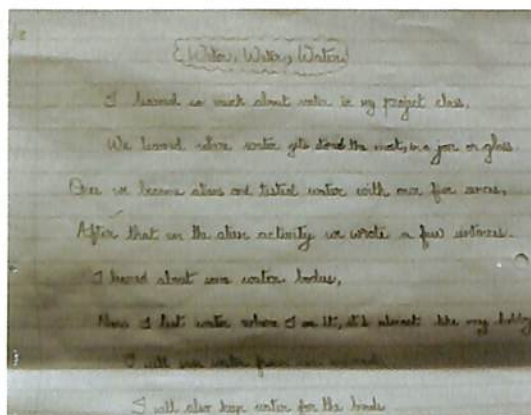 (Water, Water, Water)
I learned so much about water in my project class,
We learned where water gets stored the most, in a jar or glass.
Once we became aliens and tested water with our five sences,
After that in the alien activity we wrote a few sentences.
I learned about some water bodies,
Now I test water where I see it, it's almost like my hobby
I will water from
I will also keep water for the birds